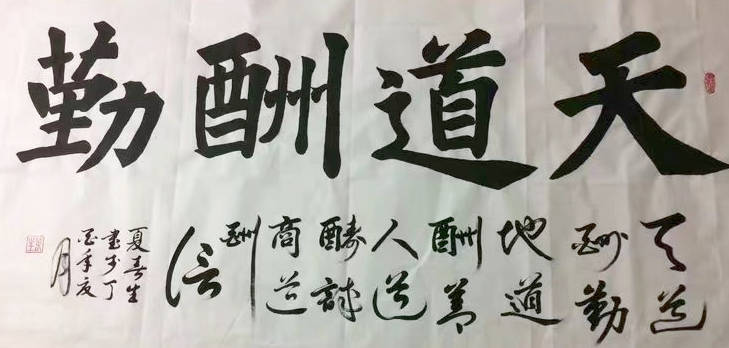 天道酬勤
天道
酬勤
地道
酬善
人道
醻誠
商道
酬
信
夏春生
书於丁
酉年夏
月